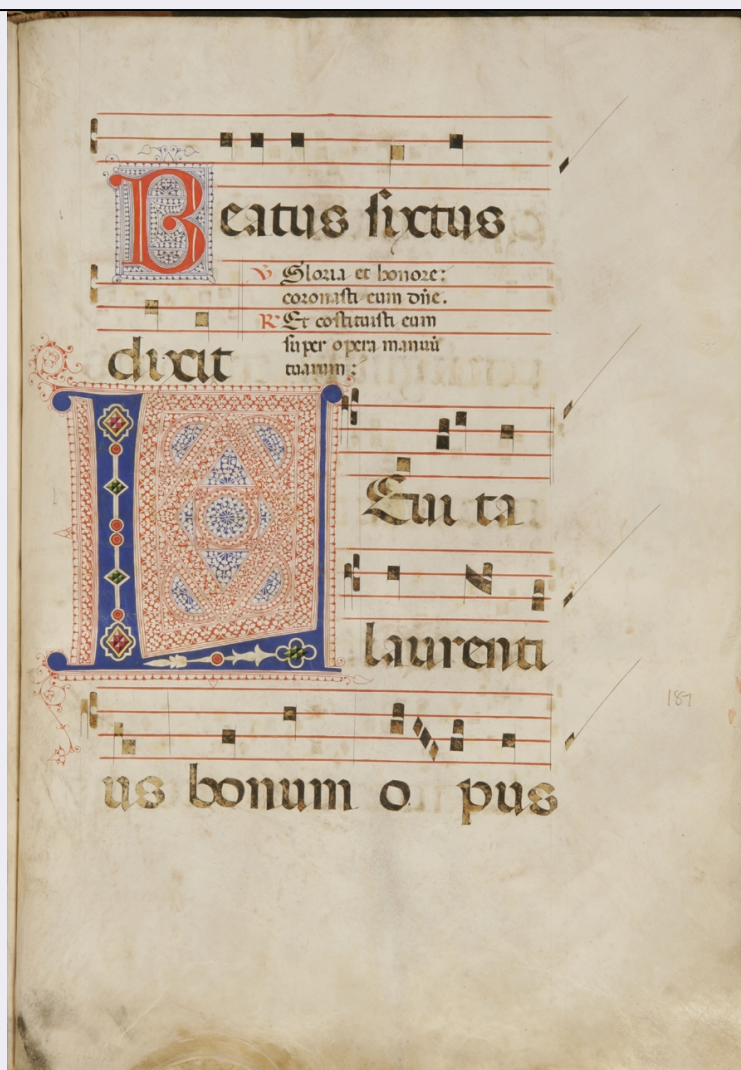 Beatus sixtus
℣ Gloria et honore:
coronasti eum dñe.
℟ Et cõstituisti eum
super opera manuũ
tuarum:
dixit
Leui ta
laurenti
us bonum o pus
187